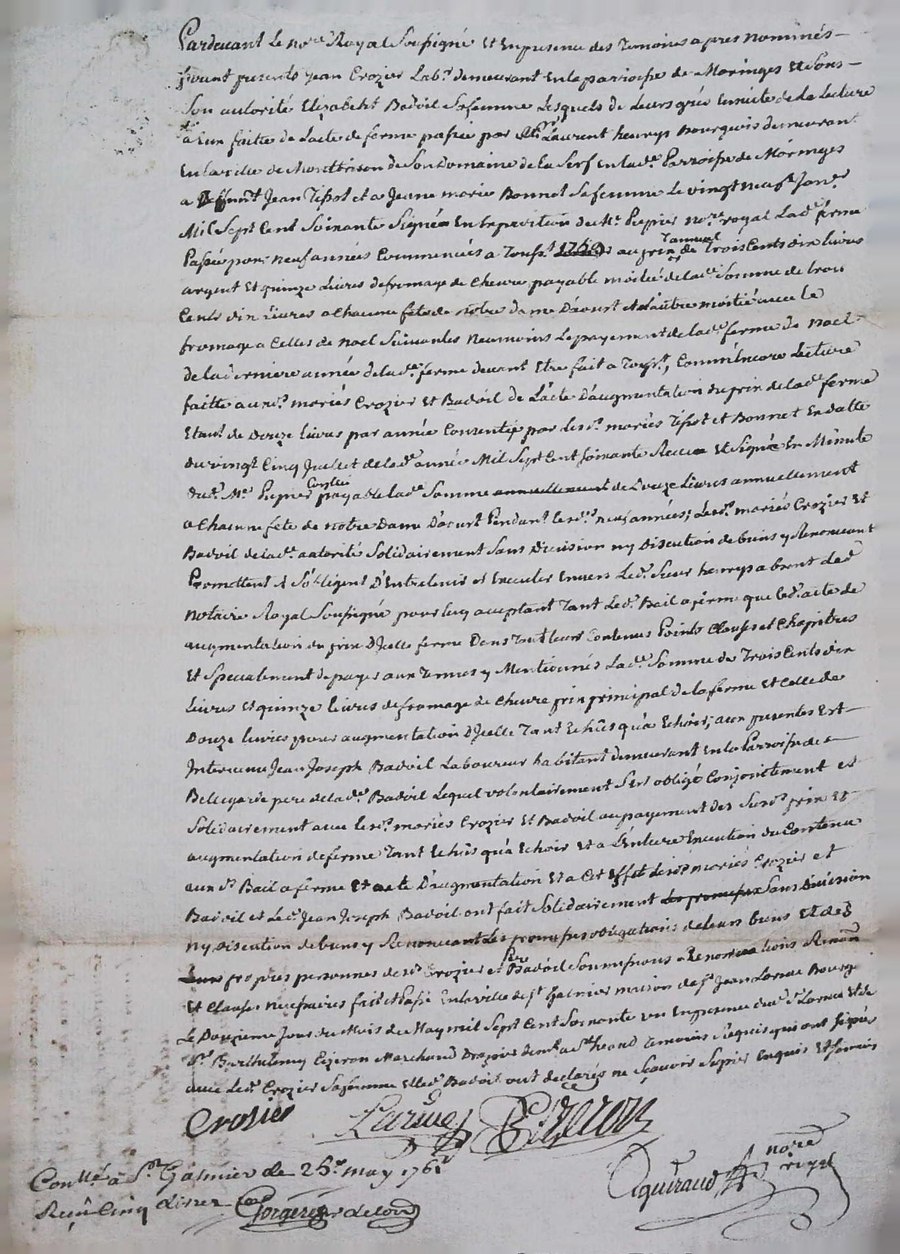 Pardevant Le no.re Royal Soussigné Et En presence des Temoins apres Nommés
furent presents Jean Crozier Lab.r demeurant En la parroisse de Maringes Et Sous
Son autorité Elizabeht Badoil Sa femme Lesquels de Leurs gréz Ensuite de la Lecture
a Eux faitte de Lacte de ferme passée par Laurent henrys Bourgeois demeurant
En la ville de Montbrison de Son Domaine de la Serf En lad.e Parroisse de Maringes
a Deffunt Jean Tissot et a Jeanne marie Bonnet Sa femme Le vingt neuf Janv.r
Mil Sept Cent Soixante Signée En Expedition du M.e Pupier no.re royal Lad.e ferme
Passée pour neuf années Commencées a Touss.t 1760 au prix de Trois Cents dix livres
argent Et quinze Livres de fromage de Chevre payable moitié de lad.e Somme de trois
Cents dix Livres a Chacune fête de notre dame D'aoust Et L'autre moitié avec le
fromage a Celles de noel Suivantes Neanmoins Le payement de lad.e ferme de Noel
de la derniere année de lad.e ferme devant Etre fait a Touss.t, Comm'Encore Lecture
faitte auxd.s mariés Crozier Et Badoil de L'acte D'augmentation du prix de lad.e ferme
Et de Douze Livres par année Consentie par lesd.s mariés Tissot et Bonnet En datte
du vingt Cinq Juillet de lad.e année Mil Sept Cent Soixante Receue et Signée En Minute
dud.t M.e Pupier payable lad.e Somme annuellement de Douze Livres annuellement
a Chacune fête de notre Dame D'aoust Pendant lesd.s neuf années; Lesd.s mariés Crozier Et
Badoil de lad.e autorité Solidairement Sans Division ny Discution de biens y Renonceant
Promettent Et S'obligent D'Entretenir et Executer Envers Led.t Sieur henrys absent Led.t
notaire Royal Soussigné pour luy acceptant Tant Led.t Bail a ferme que led.t acte de
augmentation du prix D'Icelle ferme Dans Tout leurs Contenus Points Clauses et Chapitres
Et Specialement de payer aux Termes y Mentionnés Lad.e Somme de Trois Cents dix
Livres Et quinze livres de fromage de Chevre prix principal de la ferme Et Celle de
Douze livres pour augmentation D'Icelle Tant Echûs qu'a Echoir; aux presentes Est
Intervenu Jean Joseph Badoil Laboureur habitant demeurant En la Parroisse de
Bellegarde pere de lad.e Badoil Lequel volontairement S'Est obligé Conjoinctement et
Solidairement avec lesd.s mariés Crozier Et Badoil au payement des Susd.s prix Et
augmentation de ferme Tant Echûs qu'a Echoir Et a L'Entiere Execution du Contenu
aux d.s Bail a ferme Et acte D'augmentation Et a Cet Effet Lesd.s mariés Crozier et
Badoil et Led.t Jean Joseph Badoil ont fait Solidairement Sans Division
ny Discution de biens y Renonceant Les promesses obligations de leurs biens Et des
propres personnes desd.s Crozier et Badoil Soumissions Renonciations
Et Clauses Necessaires fait et Passé En la ville de S.t Galmier maison de S.r Jean Larue Bourg.s
Le Douzieme Jour du Mois de May mil Sept Cent Soixante un En presence dud.t S.r Larue Et de
S.r Barthelemy Cizeron Marchand Drapier Temoins Requis qui ont Signé
avec Led.t Crozier Sa femme Et led.t Badoil ont declarés ne Scavoir Signer Enquis Et Sommés
Crosier Larue Cizeron
Con.llé a S.t Galmier Le 25.e may 1761
Reçu Cinq
Eguiraud no.re royal